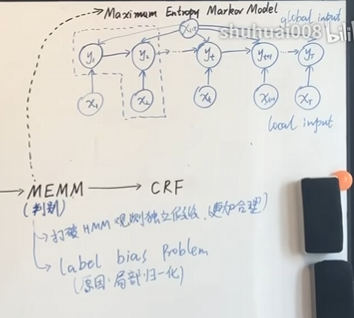 Maximum Entropy Markov Model
shuhuai008 bili
global input
x₁:T
y₁ y₂ yₜ yₜ₊₁ y_T
x₁ x₂ xₜ xₜ₊₁ x_T
local input
MEMM CRF
(判别)
打破HMM观测独立假设,更加合理)
Label bias Problem
(原因:局部归一化)